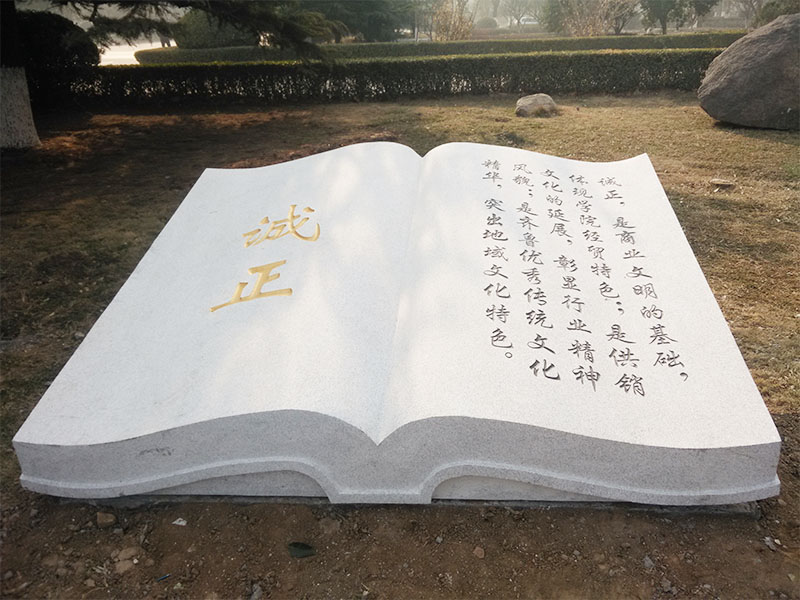 诚正
诚正，是商业文明的基础，
体现学院经贸特色；是供销
文化的延展，彰显行业精神
风貌；是齐鲁优秀传统文化
精华，突出地域文化特色。